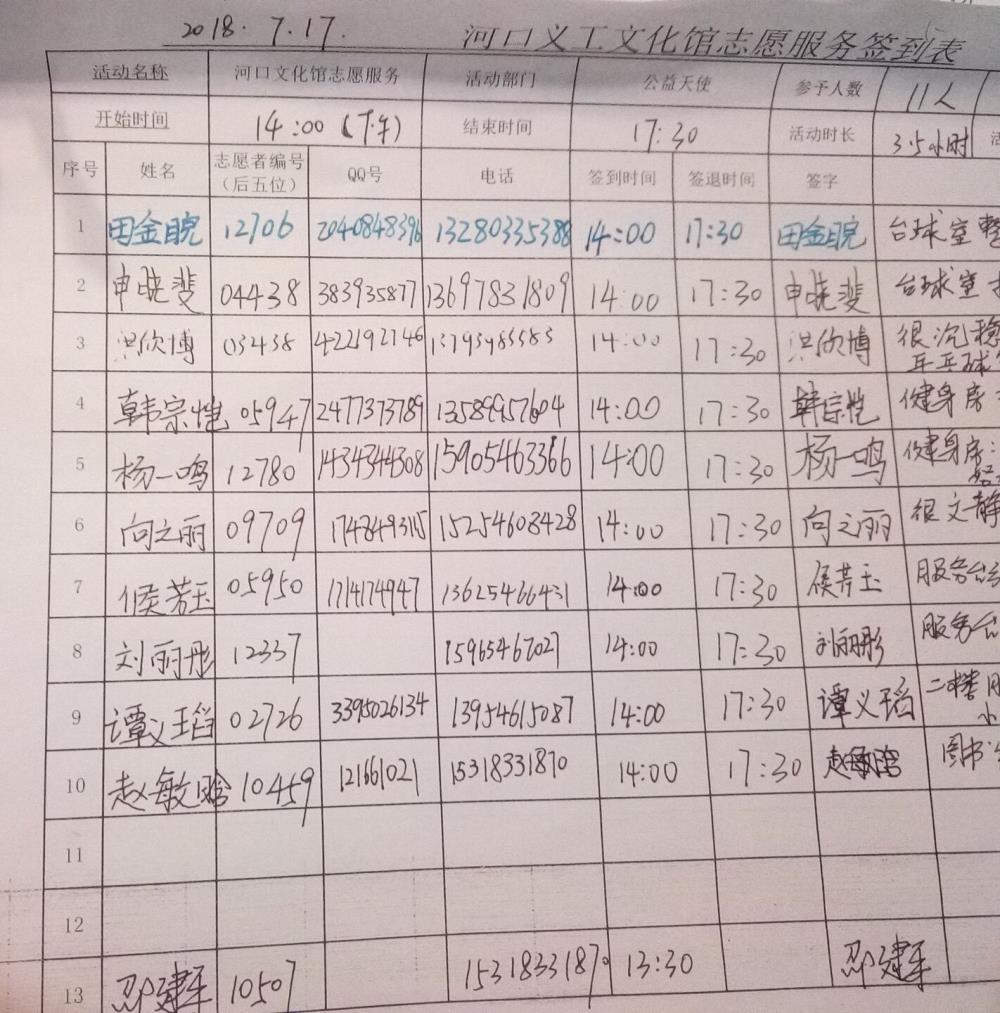 2018.7.17. 河口义工文化馆志愿服务签到表
活动名称 河口文化馆志愿服务 活动部门 公益天使 参予人数 11人
开始时间 14:00 (下午) 结束时间 17:30 活动时长 3.5小时
序号 姓名 志愿者编号（后五位） QQ号 电话 签到时间 签退时间 签字
1 田金晥 12706 2040848396 13280335388 14:00 17:30 田金晥 台球室
2 申晓斐 04438 383935877 13697831809 14:00 17:30 申晓斐 台球室
3 洪欣博 03438 422192746 14:00 17:30 洪欣博 很沉稳 乒乓球
4 韩宗恺 05947 2477373789 14:00 17:30 韩宗恺 健身房
5 杨一鸣 12780 1434344308 15905463366 14:00 17:30 杨一鸣 健身房:
6 向之丽 09709 15254608428 14:00 17:30 向之丽 很文静
7 侯芳玉 05950 1714174947 13625466431 14:00 17:30 侯芳玉 服务台
8 刘丽彤 12337 15965467027 14:00 17:30 刘丽彤 服务台
9 谭义瑫 02726 3395026134 13954615087 14:00 17:30 谭义瑫 二楼
10 赵敏晗 10459 121661021 15318331870 14:00 17:30 赵敏晗 图书
11
12
13 邵建军 10507 15318331870 13:30 邵建军